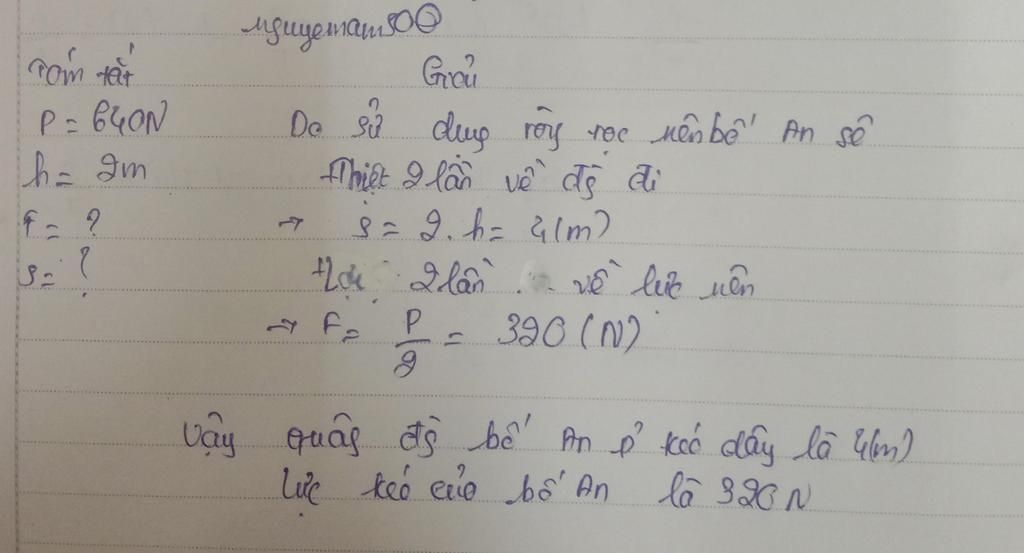 nguyenam500
Tóm tắt
Giải
P = 640N
Do sử dụng ròng rọc nên bố An sẽ
h = 2m
thiệt 2 lần về độ đi
F = ?
→ s = 2. h = 4(m)
s = ?
Lợi 2 lần về lực nên
→ F = P/2 = 320 (N)
Vậy quãng độ bố An p' kéo dây là 4(m)
Lực kéo của bố An là 320N